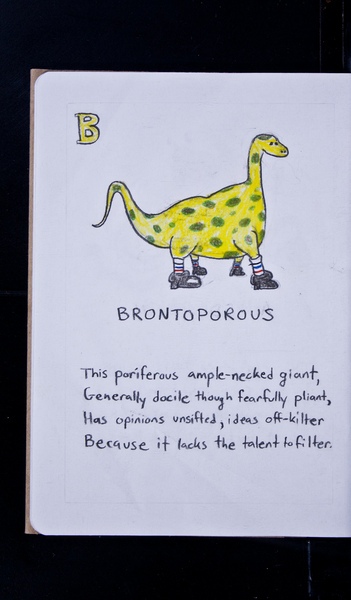 B
BRONTOPOROUS
This poriferous ample-necked giant,
Generally docile though fearfully pliant,
Has opinions unsifted, ideas off-kilter
Because it lacks the talent to filter.